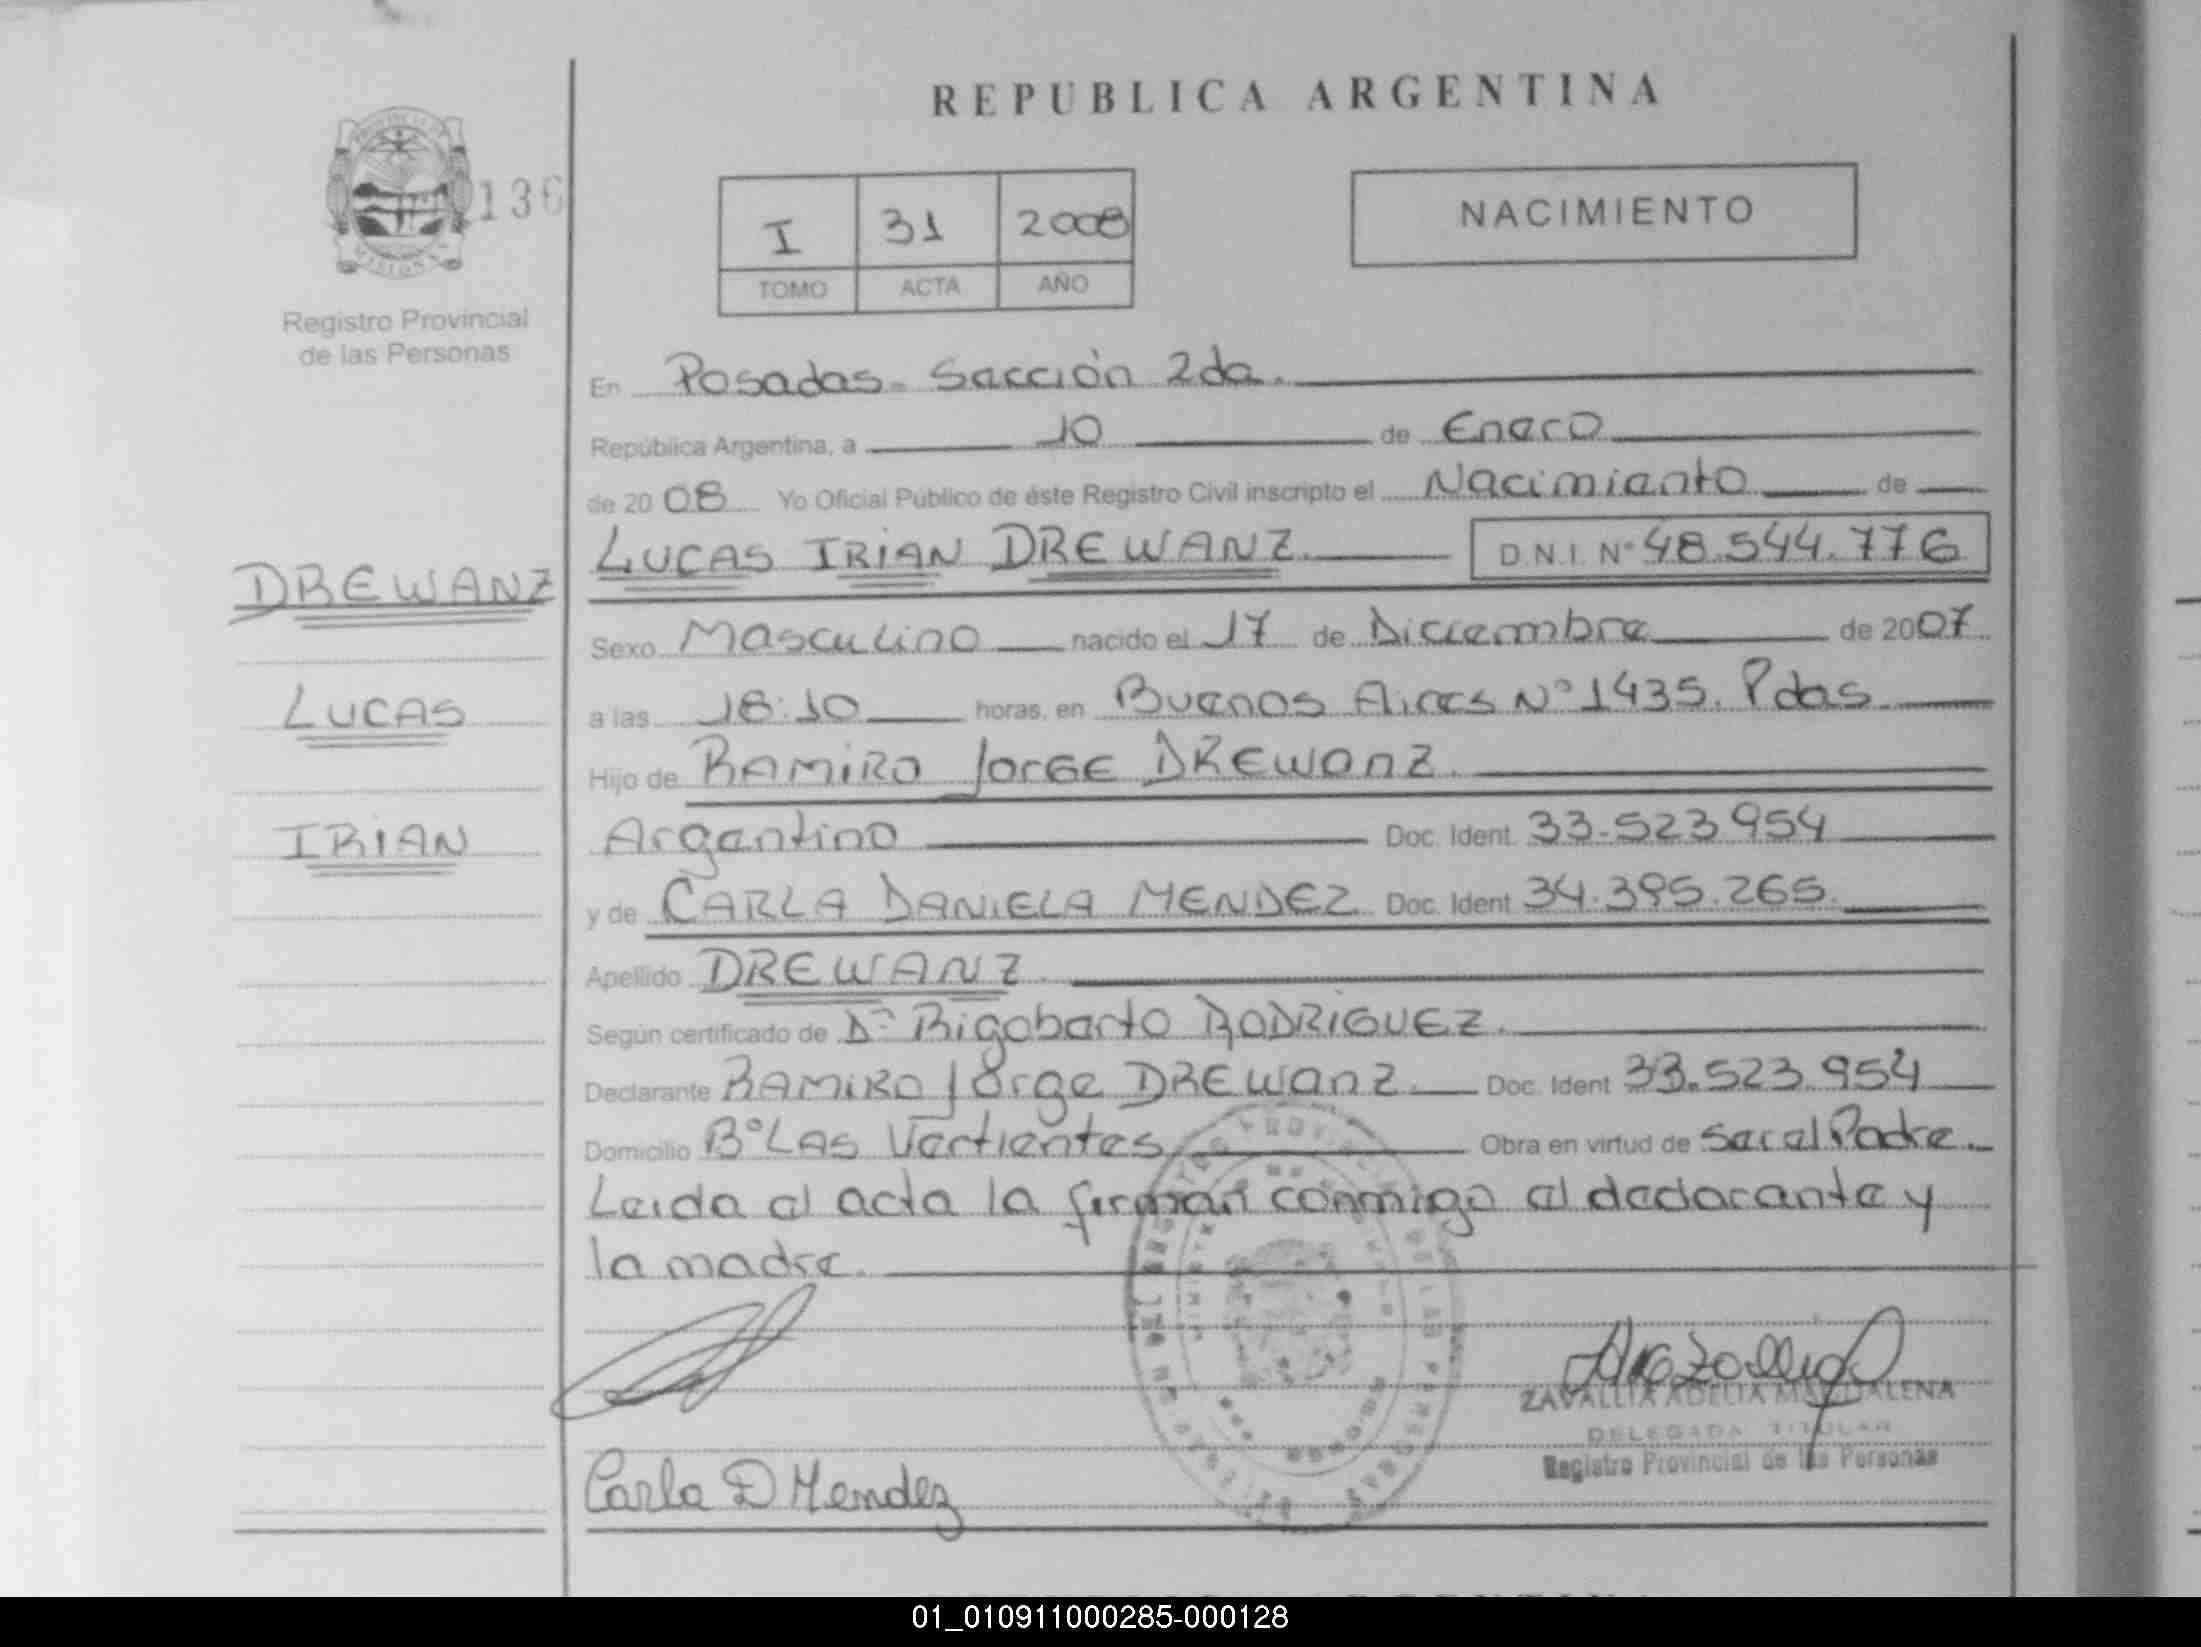 REPUBLICA ARGENTINA
PROVINCIA DE MISIONES
136
Registro Provincial
de las Personas
I 31 2008
TOMO ACTA AÑO
NACIMIENTO
En Posadas- Sección 2da.
República Argentina, a 10 de Enero
de 2008 Yo Oficial Público de éste Registro Civil inscripto el Nacimiento de
LUCAS IRIAN DREWANZ. D.N.I. Nº 48.544.776
DREWANZ
LUCAS
IRIAN
Sexo Masculino nacido el 17 de Diciembre de 2007
a las 18:10 horas, en Buenos Aires Nº 1435. Pdas
Hijo de RAMIRO JORGE DREWANZ.
Argentino Doc. Ident. 33.523.954
y de CARLA DANIELA MENDEZ Doc. Ident. 34.395.265.
Apellido DREWANZ.
Según certificado de Dr. Rigoberto RODRIGUEZ.
Declarante RAMIRO Jorge DREWANZ. Doc. Ident 33.523.954
Domicilio Bº LAS Vertientes Obra en virtud de ser el Padre.
Leida el acta la firman conmigo el declarante y
la madre.
Carla D Mendez
ZAVALLIA ADELIA MAGDALENA
DELEGADA TITULAR
Registro Provincial de las Personas
01_010911000285-000128